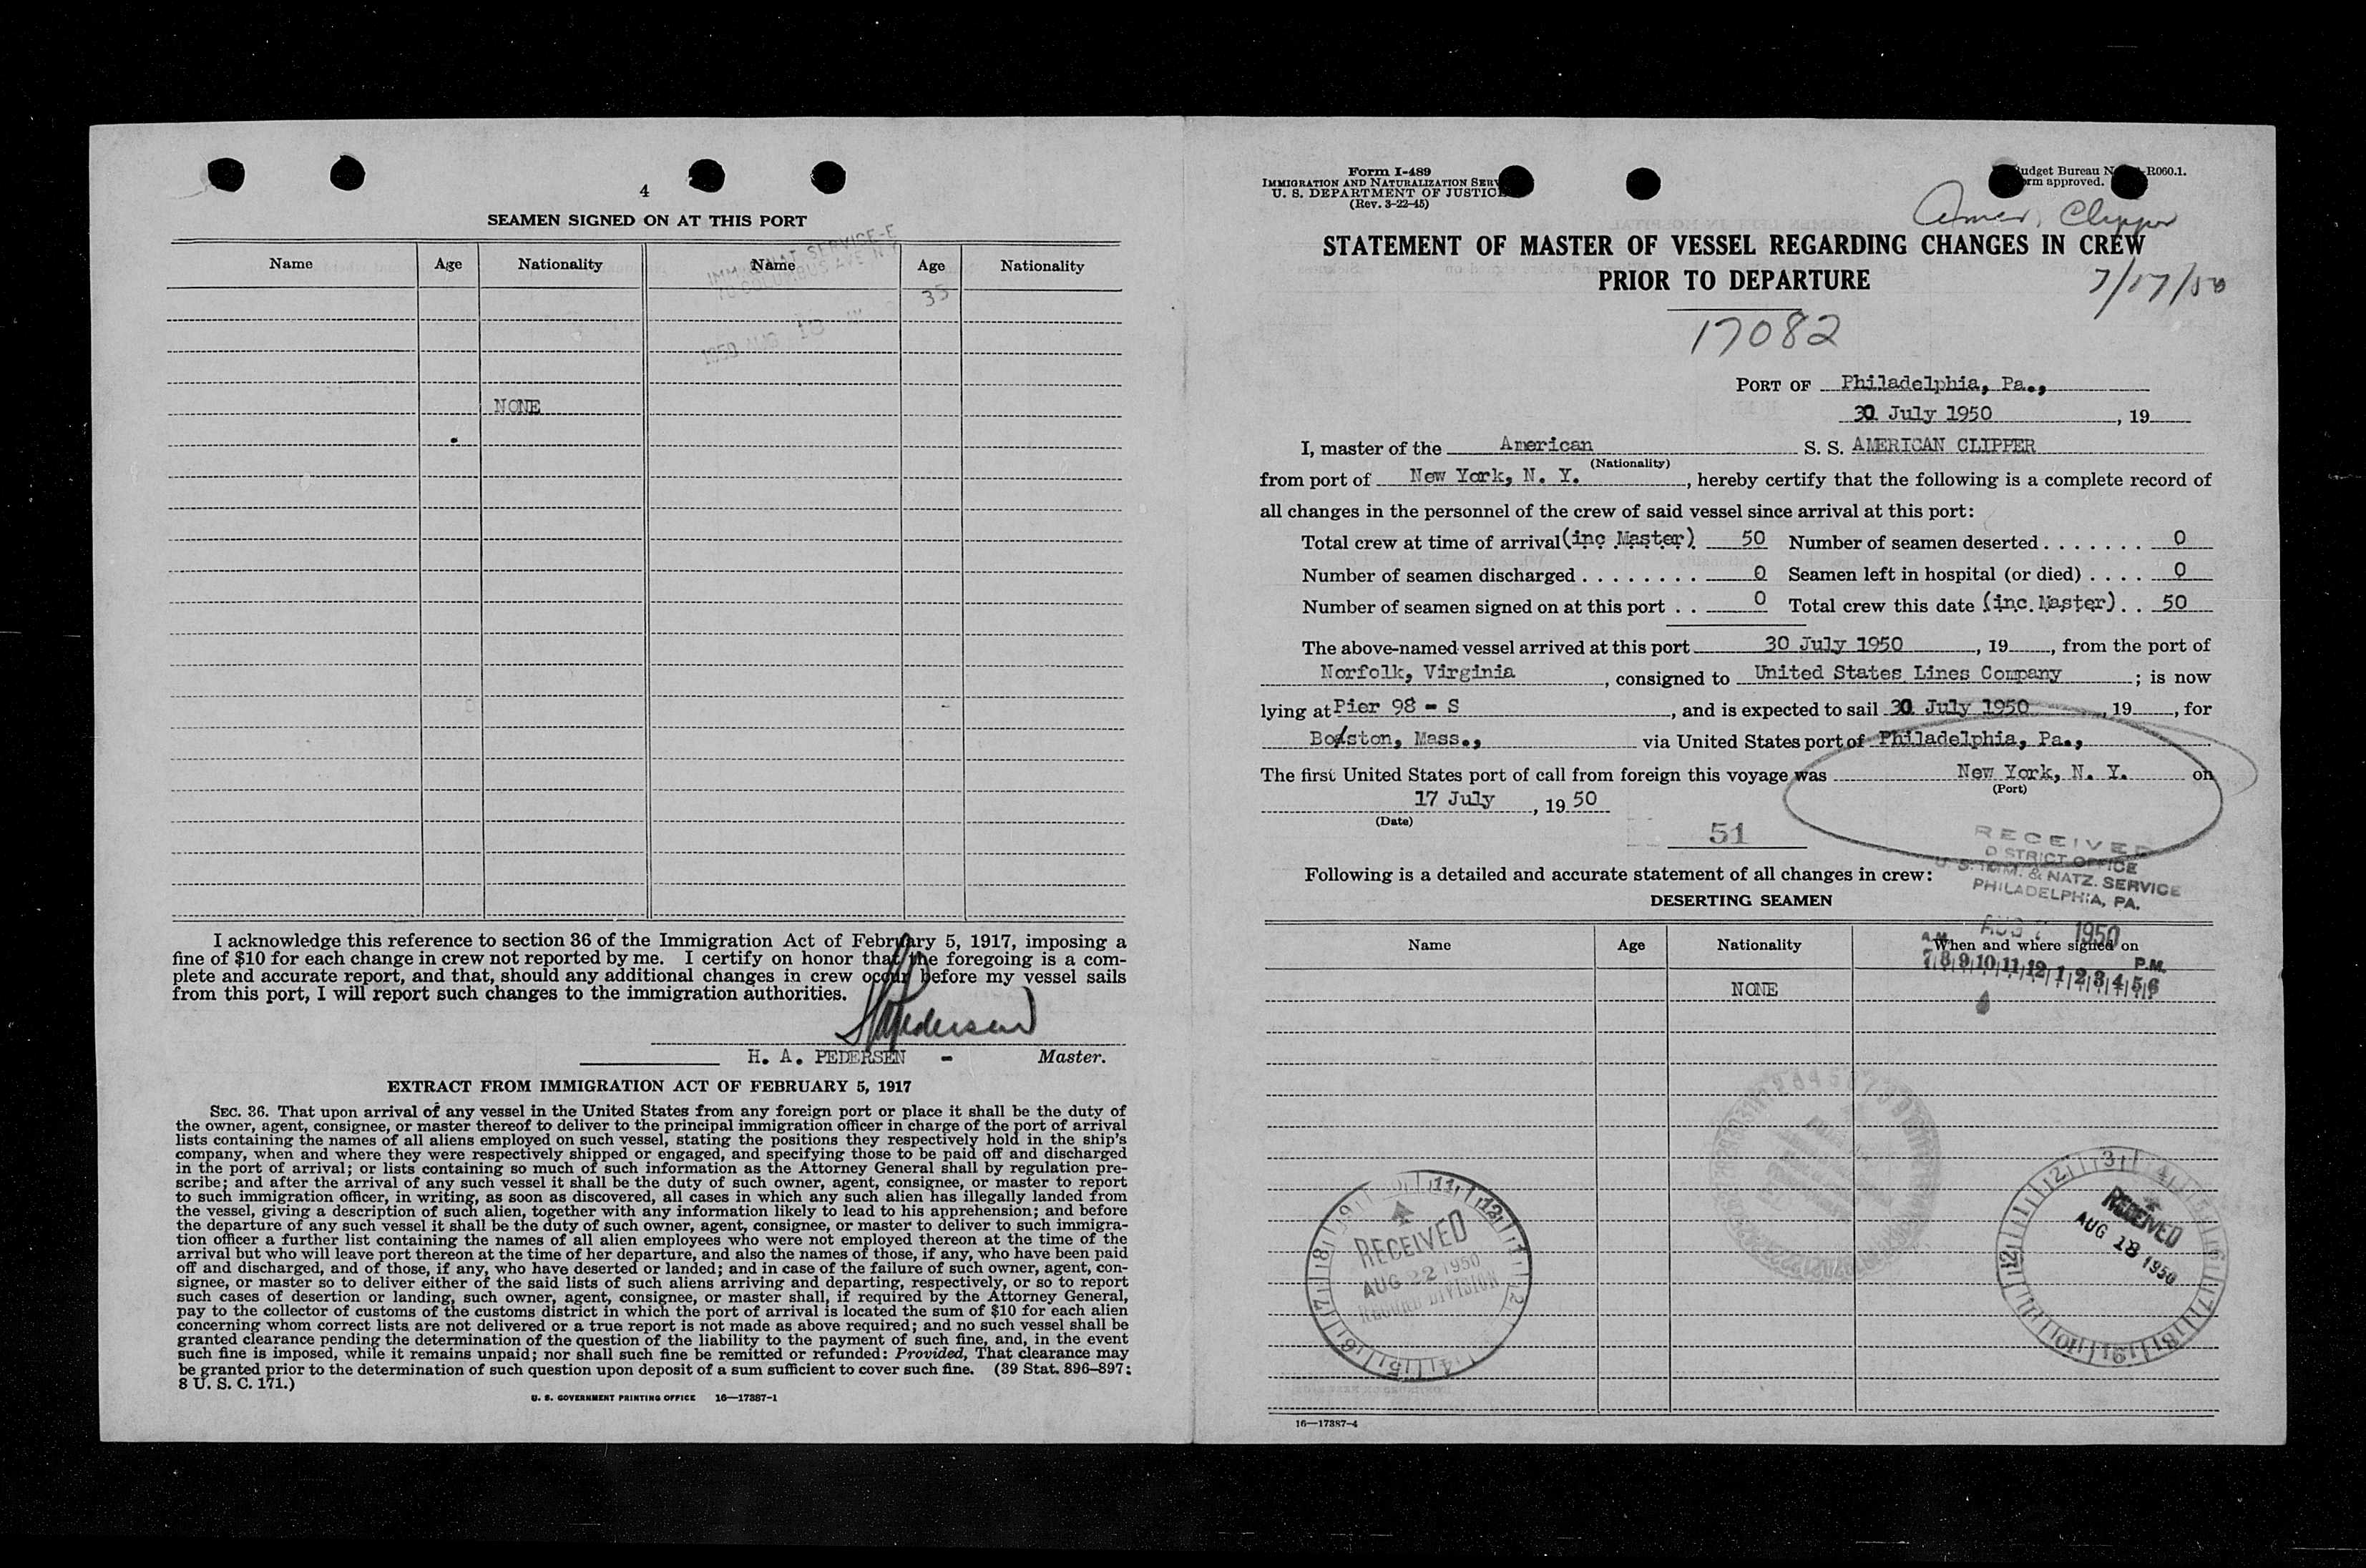 4
SEAMEN SIGNED ON AT THIS PORT
Name Age Nationality Name Age Nationality
IMMIGRAT SERVICE-E
70 COLUMBUS AVE N Y
1950 AUG 10
35
NONE
I acknowledge this reference to section 36 of the Immigration Act of February 5, 1917, imposing a
fine of $10 for each change in crew not reported by me. I certify on honor that the foregoing is a com-
plete and accurate report, and that, should any additional changes in crew occur before my vessel sails
from this port, I will report such changes to the immigration authorities.
H A Pedersen
H. A. PEDERSEN - Master.
EXTRACT FROM IMMIGRATION ACT OF FEBRUARY 5, 1917
SEC. 36. That upon arrival of any vessel in the United States from any foreign port or place it shall be the duty of
the owner, agent, consignee, or master thereof to deliver to the principal immigration officer in charge of the port of arrival
lists containing the names of all aliens employed on such vessel, stating the positions they respectively hold in the ship's
company, when and where they were respectively shipped or engaged, and specifying those to be paid off and discharged
in the port of arrival; or lists containing so much of such information as the Attorney General shall by regulation pre-
scribe; and after the arrival of any such vessel it shall be the duty of such owner, agent, consignee, or master to report
to such immigration officer, in writing, as soon as discovered, all cases in which any such alien has illegally landed from
the vessel, giving a description of such alien, together with any information likely to lead to his apprehension; and before
the departure of any such vessel it shall be the duty of such owner, agent, consignee, or master to deliver to such immigra-
tion officer a further list containing the names of all alien employees who were not employed thereon at the time of the
arrival but who will leave port thereon at the time of her departure, and also the names of those, if any, who have been paid
off and discharged, and of those, if any, who have deserted or landed; and in case of the failure of such owner, agent, con-
signee, or master so to deliver either of the said lists of such aliens arriving and departing, respectively, or so to report
such cases of desertion or landing, such owner, agent, consignee, or master shall, if required by the Attorney General,
pay to the collector of customs of the customs district in which the port of arrival is located the sum of $10 for each alien
concerning whom correct lists are not delivered or a true report is not made as above required; and no such vessel shall be
granted clearance pending the determination of the question of the liability to the payment of such fine, and, in the event
such fine is imposed, while it remains unpaid; nor shall such fine be remitted or refunded: Provided, That clearance may
be granted prior to the determination of such question upon deposit of a sum sufficient to cover such fine. (39 Stat. 896–897;
8 U. S. C. 171.)
U. S. GOVERNMENT PRINTING OFFICE 16—17387-1
Form I-489
IMMIGRATION AND NATURALIZATION SERV
U. S. DEPARTMENT OF JUSTIC
(Rev. 3-22-45)
udget Bureau N -R060.1.
rm approved.
Amer. Clipper
STATEMENT OF MASTER OF VESSEL REGARDING CHANGES IN CREW
PRIOR TO DEPARTURE
7/17/50
17082
PORT OF Philadelphia, Pa.,
30 July 1950, 19
I, master of the American S. S. AMERICAN CLIPPER
(Nationality)
from port of New York, N. Y., hereby certify that the following is a complete record of
all changes in the personnel of the crew of said vessel since arrival at this port:
Total crew at time of arrival (inc Master) 50 Number of seamen deserted 0
Number of seamen discharged 0 Seamen left in hospital (or died) 0
Number of seamen signed on at this port 0 Total crew this date (inc. Master) 50
The above-named vessel arrived at this port 30 July 1950, 19, from the port of
Norfolk, Virginia, consigned to United States Lines Company; is now
lying at Pier 98 - S, and is expected to sail 30 July 1950, 19, for
Boston, Mass., via United States port of Philadelphia, Pa.,
The first United States port of call from foreign this voyage was New York, N. Y. on
(Port)
17 July, 19 50
(Date)
51
RECEIVED
DISTRICT OFFICE
U. S. IMM. & NATZ. SERVICE
PHILADELPHIA, PA.
Following is a detailed and accurate statement of all changes in crew:
DESERTING SEAMEN
AUG 1950
Name Age Nationality When and where signed on
A.M. P.M.
7 8 9 10 11 12 1 2 3 4 5 6
NONE
RECEIVED
AUG 22 1950
RECORD DIVISION
RECEIVED
AUG 18 1950
16—17387-4